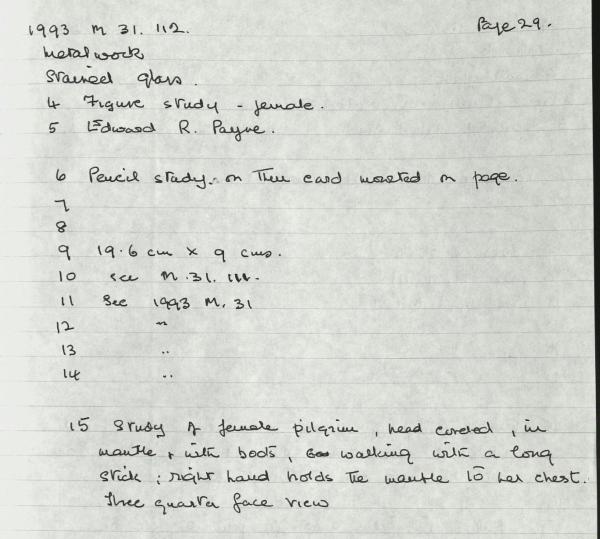 1993 M 31. 112. Page 29.
Metalwork
Stained glass.
4 Figure study - female.
5 Edward R. Payne.
6 Pencil study. on thin card mounted on page.
7
8
9 19.6 cm x 9 cms.
10 see M.31. 111.
11 See 1993 M. 31
12 "
13 "
14 "
15 Study of female pilgrim, head covered, in
mantle, with boots, walking with a long
stick; right hand holds the mantle to her chest.
three quarter face view